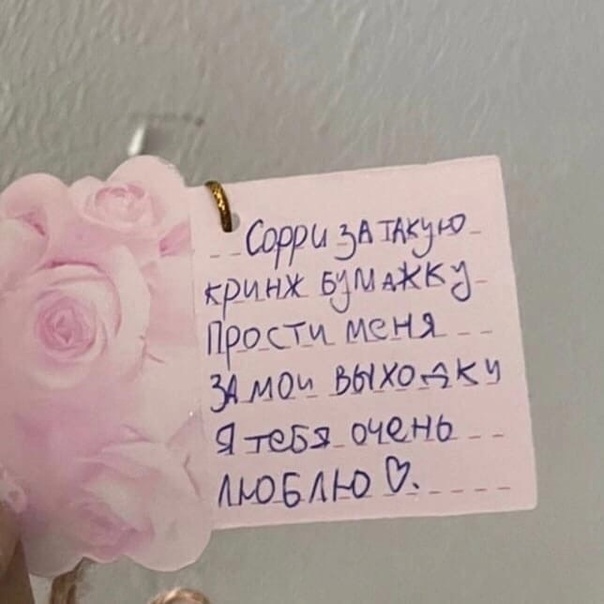 Сорри за такую
кринж бумажку
Прости меня
за мои выходки
Я тебя очень
люблю ♡.